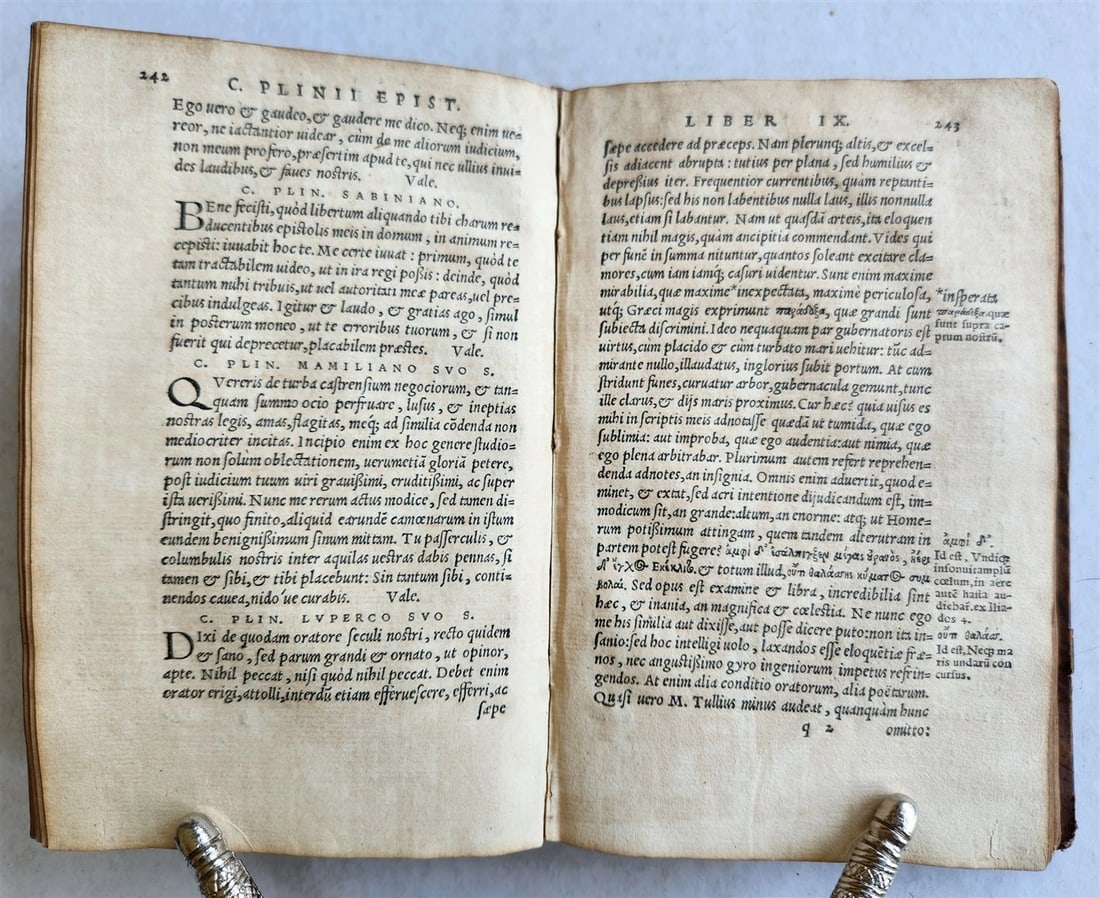 242
C. PLINII EPIST.
Ego uero & gaudeo, & gaudere me dico. Neq; enim ue=
reor, ne iactantior uidear, cùm de me aliorum iudicium,
non meum profero, præsertim apud te, qui nec ullius inui=
des laudibus, & faues nostris. Vale.
C. PLIN. SABINIANO.
BEne fecisti, quòd libertum aliquando tibi charum re=
ducentibus epistolis meis in domum, in animum re=
cepisti: iuuabit hoc te. Me certe iuuat: primum, quòd te
tam tractabilem uideo, ut in ira regi poßis: deinde, quòd
tantum mihi tribuis, ut uel autoritati meæ pareas, uel pre=
cibus indulgeas. Igitur & laudo, & gratias ago, simul
in posterum moneo, ut te erroribus tuorum, & si non
fuerit qui deprecetur, placabilem præstes. Vale.
C. PLIN. MAMILIANO SVO S.
QVereris de turba castrensium negociorum, & tan=
quam summo ocio perfruare, lusus, & ineptias
nostras legis, amas, flagitas, meq; ad similia cõdenda non
mediocriter incitas. Incipio enim ex hoc genere studio=
rum non solum oblectationem, uerumetiã gloriã petere,
post iudicium tuum uiri grauißimi, eruditißimi, ac super
ista uerißimi. Nunc me rerum actus modice, sed tamen di=
stringit, quo finito, aliquid earundẽ camœnarum in istum
eundem benignißimum sinum mittam. Tu passerculis, &
columbulis nostris inter aquilas uestras dabis pennas, si
tamen & sibi, & tibi placebunt: Sin tantum sibi, conti=
nendos cauea, nido ue curabis. Vale.
C. PLIN. LVPERCO SVO S.
DIxi de quodam oratore seculi nostri, recto quidem
& sano, sed parum grandi & ornato, ut opinor,
apte. Nihil peccat, nisi quòd nihil peccat. Debet enim
orator erigi, attolli, interdũ etiam efferuescere, efferri, ac
sæpe
LIBER IX. 243
sæpe accedere ad præceps. Nam plerunq; altis, & excel=
sis adiacent abrupta: tutius per plana, sed humilius &
depreßius iter. Frequentior currentibus, quam reptanti=
bus lapsus: sed his non labentibus nulla laus, illis nonnulla
laus, etiam si labantur. Nam ut quasdã arteis, ita eloquen
tiam nihil magis, quàm ancipitia commendant. Vides qui
per funẽ in summa nituntur, quantos soleant excitare cla=
mores, cum iam iamq; casuri uidentur. Sunt enim maxime
mirabilia, quæ maxime *inexpectata, maximè periculosa,
utq; Græci magis exprimunt παράδοξα, quæ grandi sunt
subiecta discrimini. Ideo nequaquam par gubernatoris est
uirtus, cum placido & cùm turbato mari uehitur: tũc ad=
mirante nullo, illaudatus, inglorius subit portum. At cum
stridunt funes, curuatur arbor, gubernacula gemunt, tunc
ille clarus, & dijs maris proximus. Cur hæc? quia uisus es
mihi in scriptis meis adnotasse quædã ut tumida, quæ ego
sublimia: aut improba, quæ ego audentia: aut nimia, quæ
ego plena arbitrabar. Plurimum autem refert reprehen=
denda adnotes, an insignia. Omnis enim aduertit, quod e=
minet, & extat, sed acri intentione dijudicandum est, im=
modicum sit, an grande: altum, an enorme: atq; ut Home=
rum potißimum attingam, quem tandem alterutram in
partem potest fugere? ἀμφὶ δ' ἐσάλπιγξεν μέγας οὐρανὸς,
& totum illud, οὔτε θαλάσσης κῦμα
Sed opus est examine & libra, incredibilia sint
hæc, & inania, an magnifica & cœlestia. Ne nunc ego
me his similia aut dixisse, aut posse dicere puto: non ita in=
sanio: sed hoc intelligi uolo, laxandos esse eloquẽtiæ fræ=
nos, nec angustißimo gyro ingeniorum impetus refrin=
gendos. At enim alia conditio oratorum, alia poëtarum.
Quasi uero M. Tullius minus audeat, quanquàm hunc
q 2 omitto:
*insperata
παράδοξα. quæ
sunt supra ca=
ptum nostrũ.
ἀμφὶ δ'
Id est, Vndiqƺ
insonuit amplũ
cœlum, in aere
autẽ hasta au=
diebat. ex Ilia=
dos 4.
οὔτε θαλάσ.
Id est, Neqƺ ma
ris undarũ con
cursus.